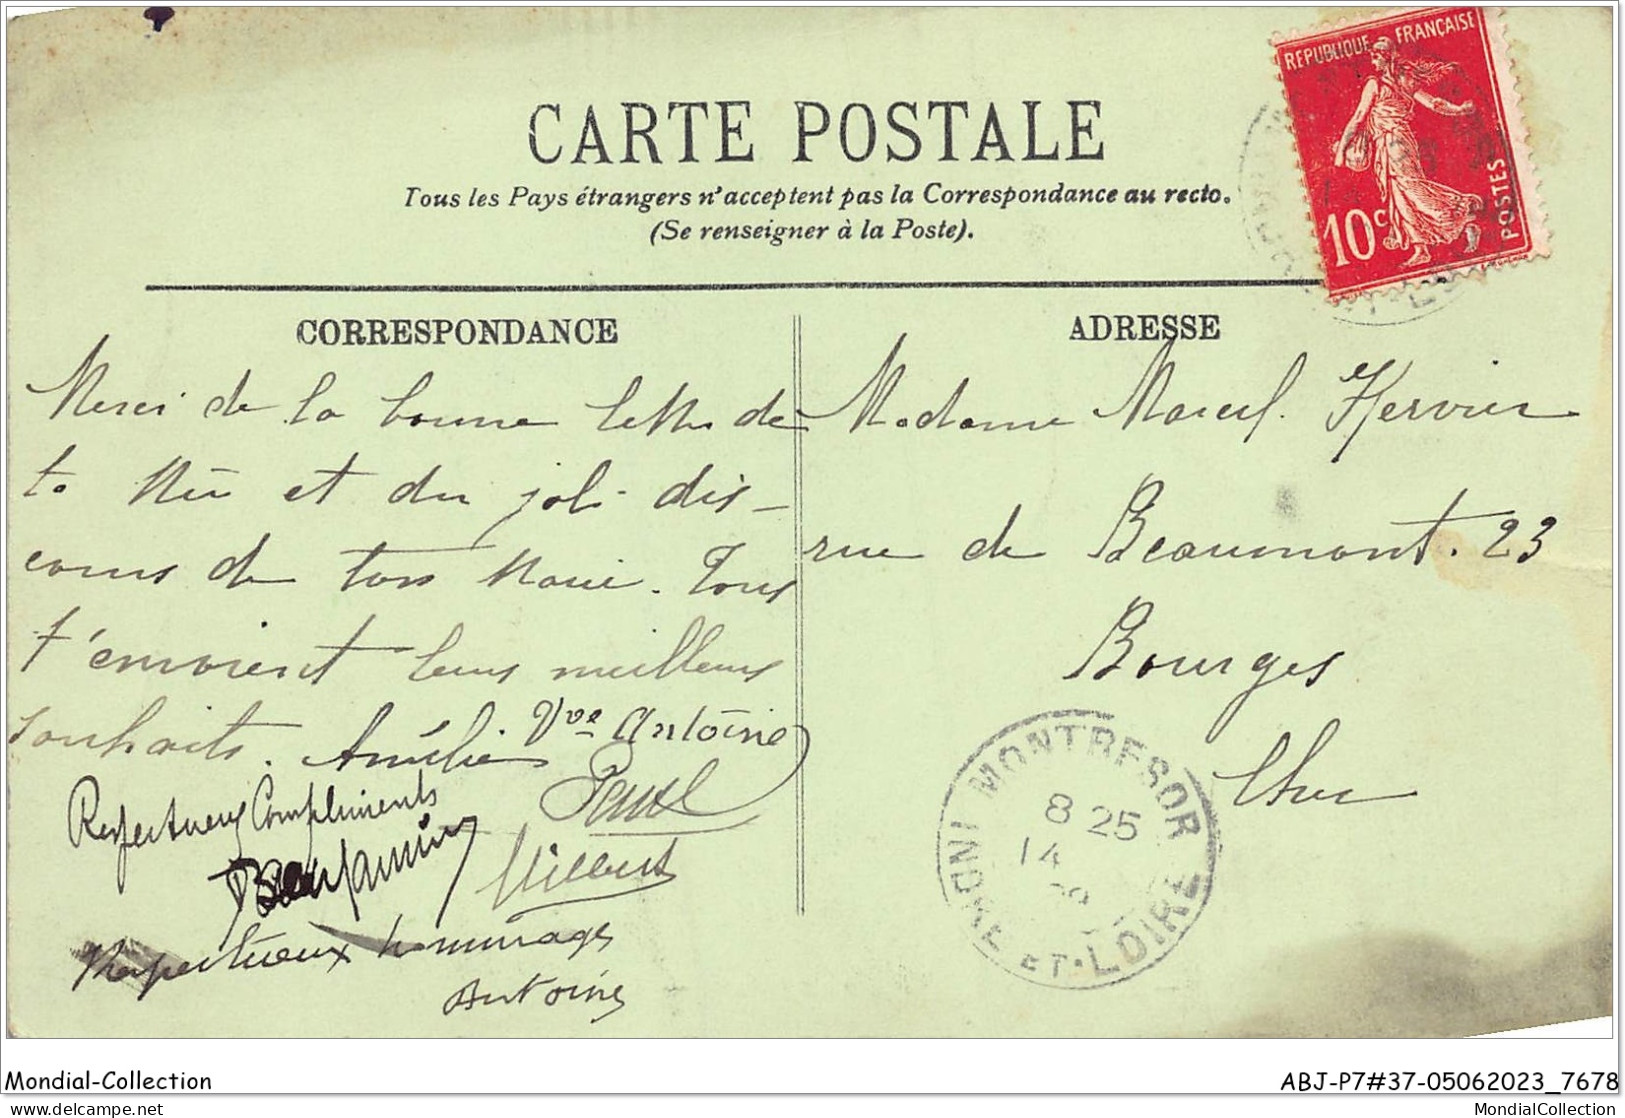 CARTE POSTALE
Tous les Pays étrangers n'acceptent pas la Correspondance au recto.
(Se renseigner à la Poste).
REPUBLIQUE FRANÇAISE
10c
POSTES
CORRESPONDANCE
Merci de la bonne lettre de
ta et du joli dis-
cours de ton Marie. Tous
t'envoient leurs meilleurs
souhaits. Amélie Vve Antoine
Paul
Respectueux Compliments
Benjamin
Respectueux hommages
Antoine
ADRESSE
Madame Marcel Hervier
rue de Beaumont. 23
Bourges
Cher
MONTRESOR
8 25
14
INDRE ET-LOIRE
Mondial-Collection
ABJ-P7#37-05062023_7678
delcampe.net
MondialCollection